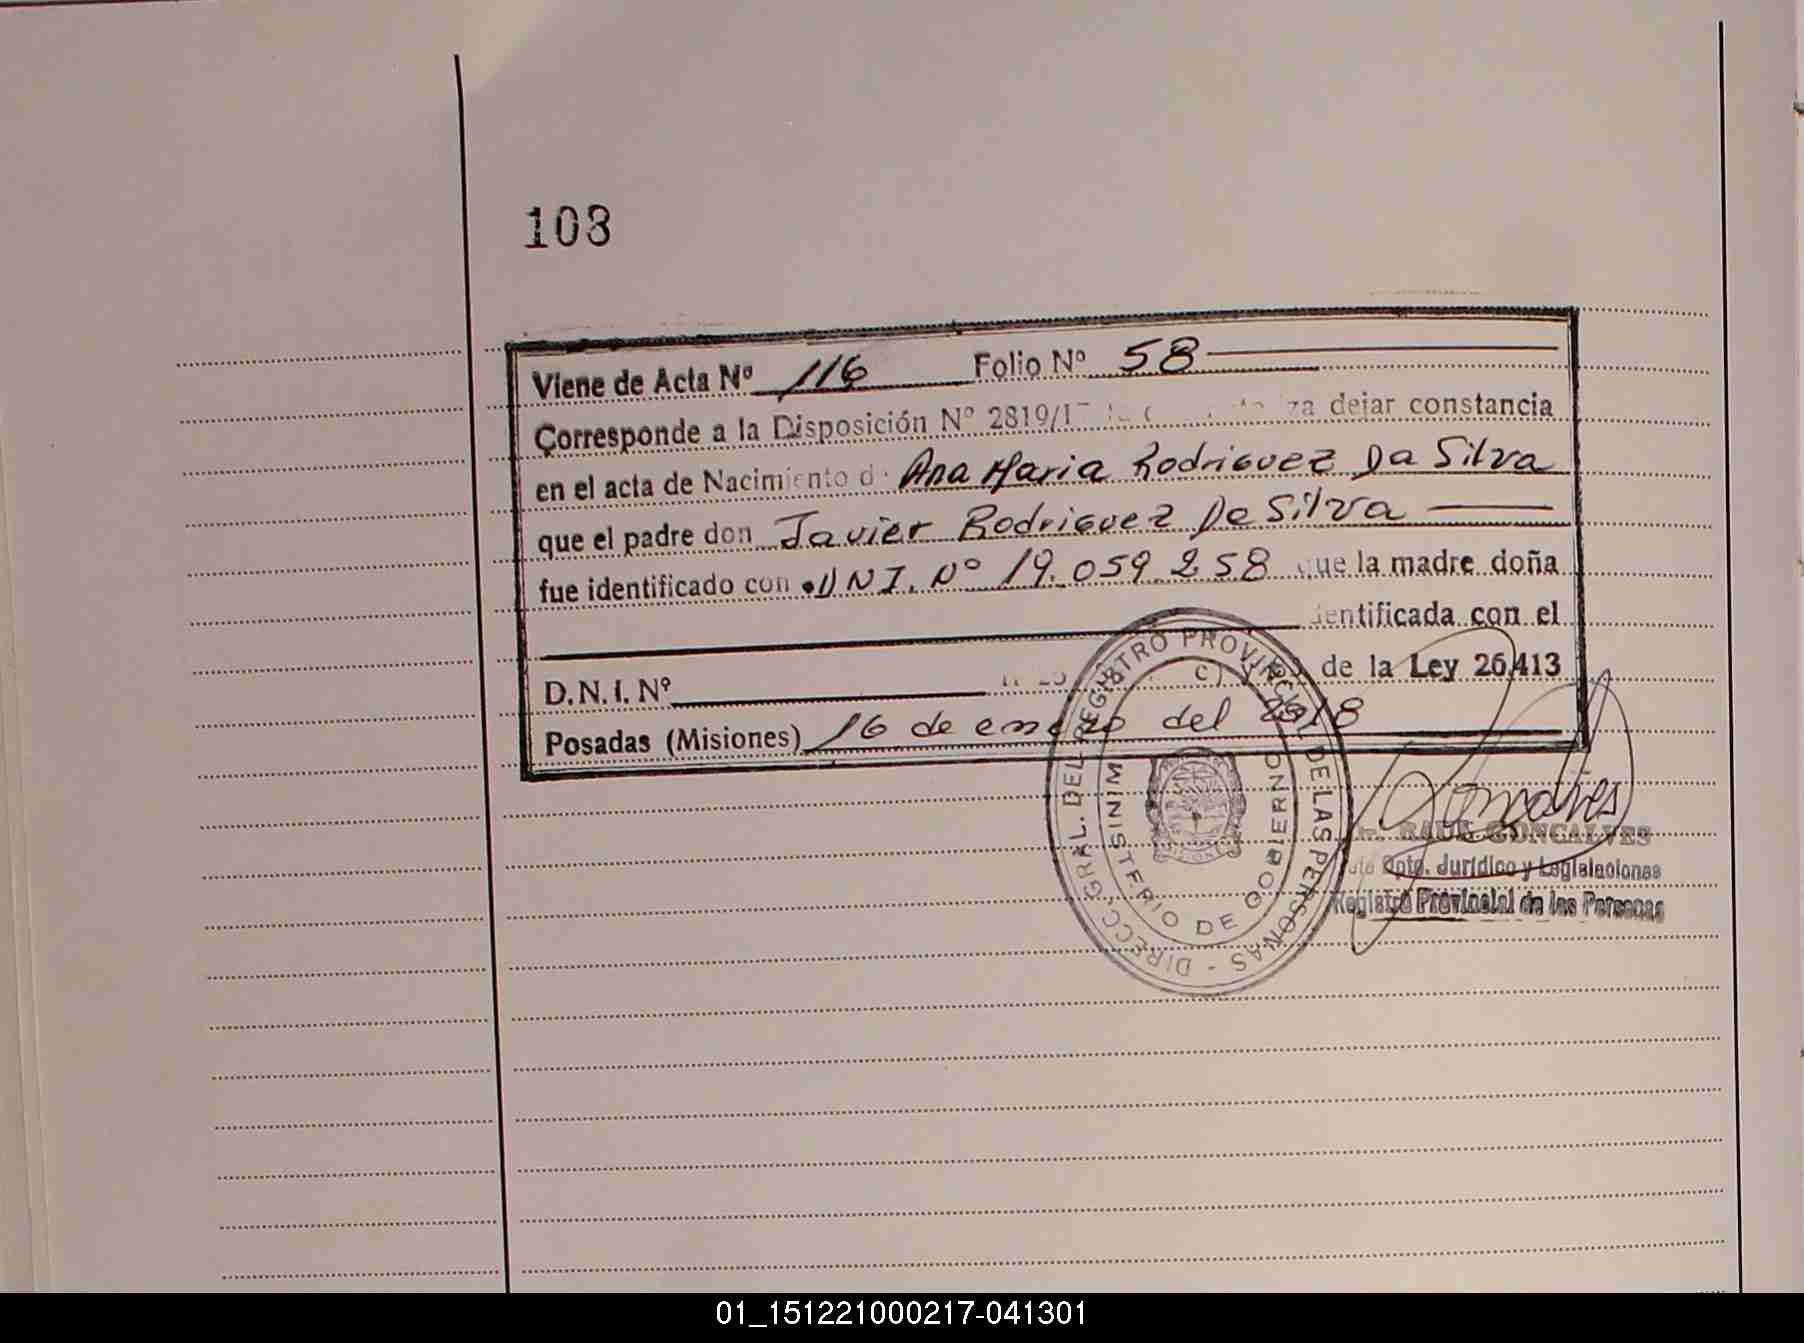 108
Viene de Acta Nº 116 Folio Nº 58
Corresponde a la Disposición Nº 2819/17 dejar constancia
en el acta de Nacimiento d Ana Maria Rodriguez Da Silva
que el padre don Javier Rodriguez Da Silva
fue identificado con DNI. Nº 19.059.258 que la madre doña
identificada con el
D.N.I. Nº c) de la Ley 26,413
Posadas (Misiones) 16 de enero del 2018
DIRECC. GRAL. DEL REGISTRO PROVINCIAL DE LAS PERSONAS -
MINISTERIO DE GOBIERNO
MISIONES
Goncalves
RAUL GONCALVES
Dpto. Jurídico y Legislaciones
Registro Provincial de las Personas
01_151221000217-041301